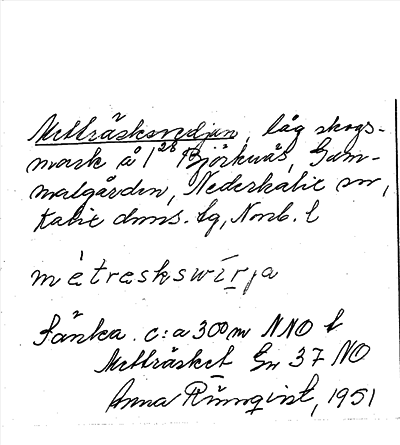 Metträsksvedjan, låg skogs-
mark å 1²⁸ Björknäs, Gam-
melgården, Nederkalix sn,
Kalix dmns. tg, Norrb. l
mètreskswirja
Sänka. c:a 300 m NNO t
Metträsket Gn 37 NO
Anna Rönnqvist, 1951